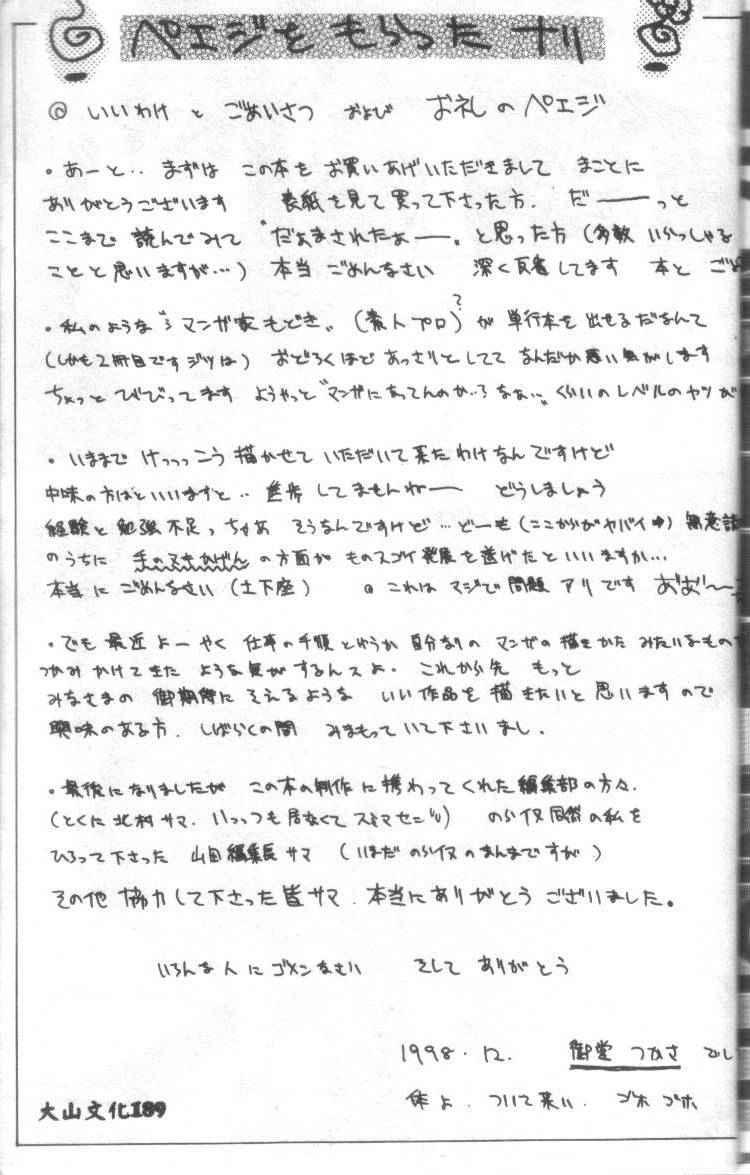 ペエジをもらったナリ
@ いいわけと ごあいさつ および お礼のペエジ
・あーと・・ まずは この本を お買いあげいただきまして まことに
ありがとうございます 表紙を見て買って下さった方. だ――っと
ここまで 読んでみて "だぁまされたぁ――。と思った方(多数 いらっしゃる
ことと思いますが…) 本当 ごめんなさい 深く反省してます 本と ごめ
・私のような〝ミマンガ家もどき〟(素人プロ)?が 単行本を出せるだなんて
(しかも2冊目です ジツは) おどろくほど あっさりとしてて なんだか悪い気がします
ちょっと びびってます ようやっと〝マンガになってんのか…ろなぁ…〟くらいのレベルのヤツが
・いままで けっっっこう 描かせて いただいて来たわけなんですけど
中味の方はといいますと・・ 進歩 してませんねー どうしましょう
経験と 勉強不足っちゃあ そうなんですけど… どーも(ここからがヤバイ中) 無意識
のうちに 手のヌキかげん の方面が ものスゴイ発展を遂げたといいますか…
本当に ごめんなさい(土下座) @ これは マジで 問題 アリです おお〜
・でも 最近 よーやく 仕事の手順というか 自分なりの マンガの描きかた みたいなもの
つかみかけてきた ような気がするんスよ. これから先 もっと
みなさまの 御期待に そえるような いい作品を 描きたいと思いますので
興味のある方. しばらくの間 みまもって いて下さいまし.
・最後になりましたが この本の制作に携わってくれた編集部の方々.
(とくに北村サマ. いっっつも居なくて スミマセン) のらイヌ同然の私を
ひろって下さった 山田編集長サマ (いまだ のらイヌのまんまですが)
その他 協力して下さった皆サマ. 本当にありがとう ございました。
いろんな人に ゴメンなさい そして ありがとう
1998.12. 御堂 つかさ でし
体よ. ついて来い. ゴホ ゴホ
大山文化189